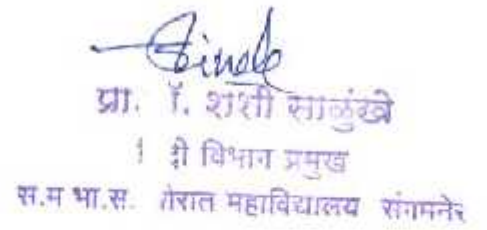 प्रा. शशी साळुंखे
विभाग प्रमुख
स.म भा.स. महाविद्यालय संगमनेर